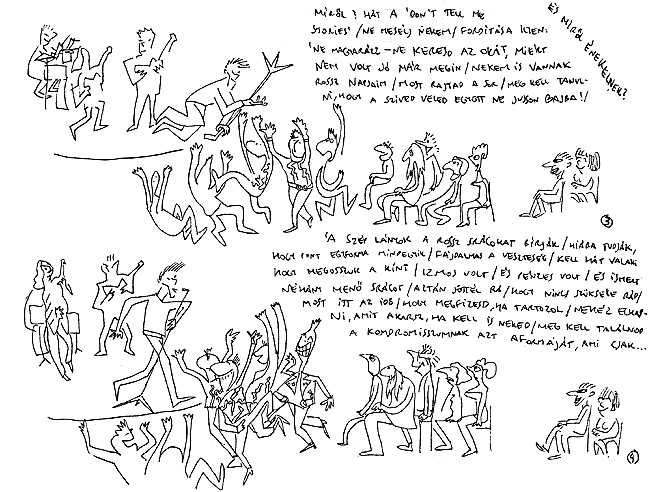 ÉS MIRŐL ÉNEKELNEK?
MIRŐL? HÁT A 'DON'T TELL ME
STORIES' / NE MESÉLJ NEKEM / FORDÍTÁSA ILYEN:
'NE MAGYARÁZZ – NE KERESD AZ OKÁT, MIÉRT
NEM VOLT JÓ MÁR MEGIN / NEKEM IS VANNAK
ROSSZ NAPJAIM / MOST RAJTAD A SOR / MEG KELL TANUL-
NI, HOGY A SZIVED VELED EGYÜTT NE JUSSON BAJBA!/
3
'A SZÉP LÁNYOK A ROSSZ SRÁCOKAT BÍRJÁK / HIÁBA TUDJÁK,
HOGY PONT EGYFORMA MINDEGYIK / FÁJDALMAS A VESZTESÉG / KELL HÁT VALAKI
HOGY MEGOSSZUK A KÍNT / IZMOS VOLT / ÉS PÉNZES VOLT / ÉS ISMERT
NÉHÁNY MENŐ SRÁCOT / AZTÁN JÖTTÉL RÁ / HOGY NINCS SZÜKSÉGE RÁD /
MOST ITT AZ IDŐ / HOGY MEGFIZESD, HA TARTOZOL / NEHÉZ ELHAGY-
NI, AMIT AKARSZ, HA KELL IS NEKED / MEG KELL TALÁLNOD
A KOMPROMISSZUMNAK AZT A FORMÁJÁT, AMI CSAK...
4